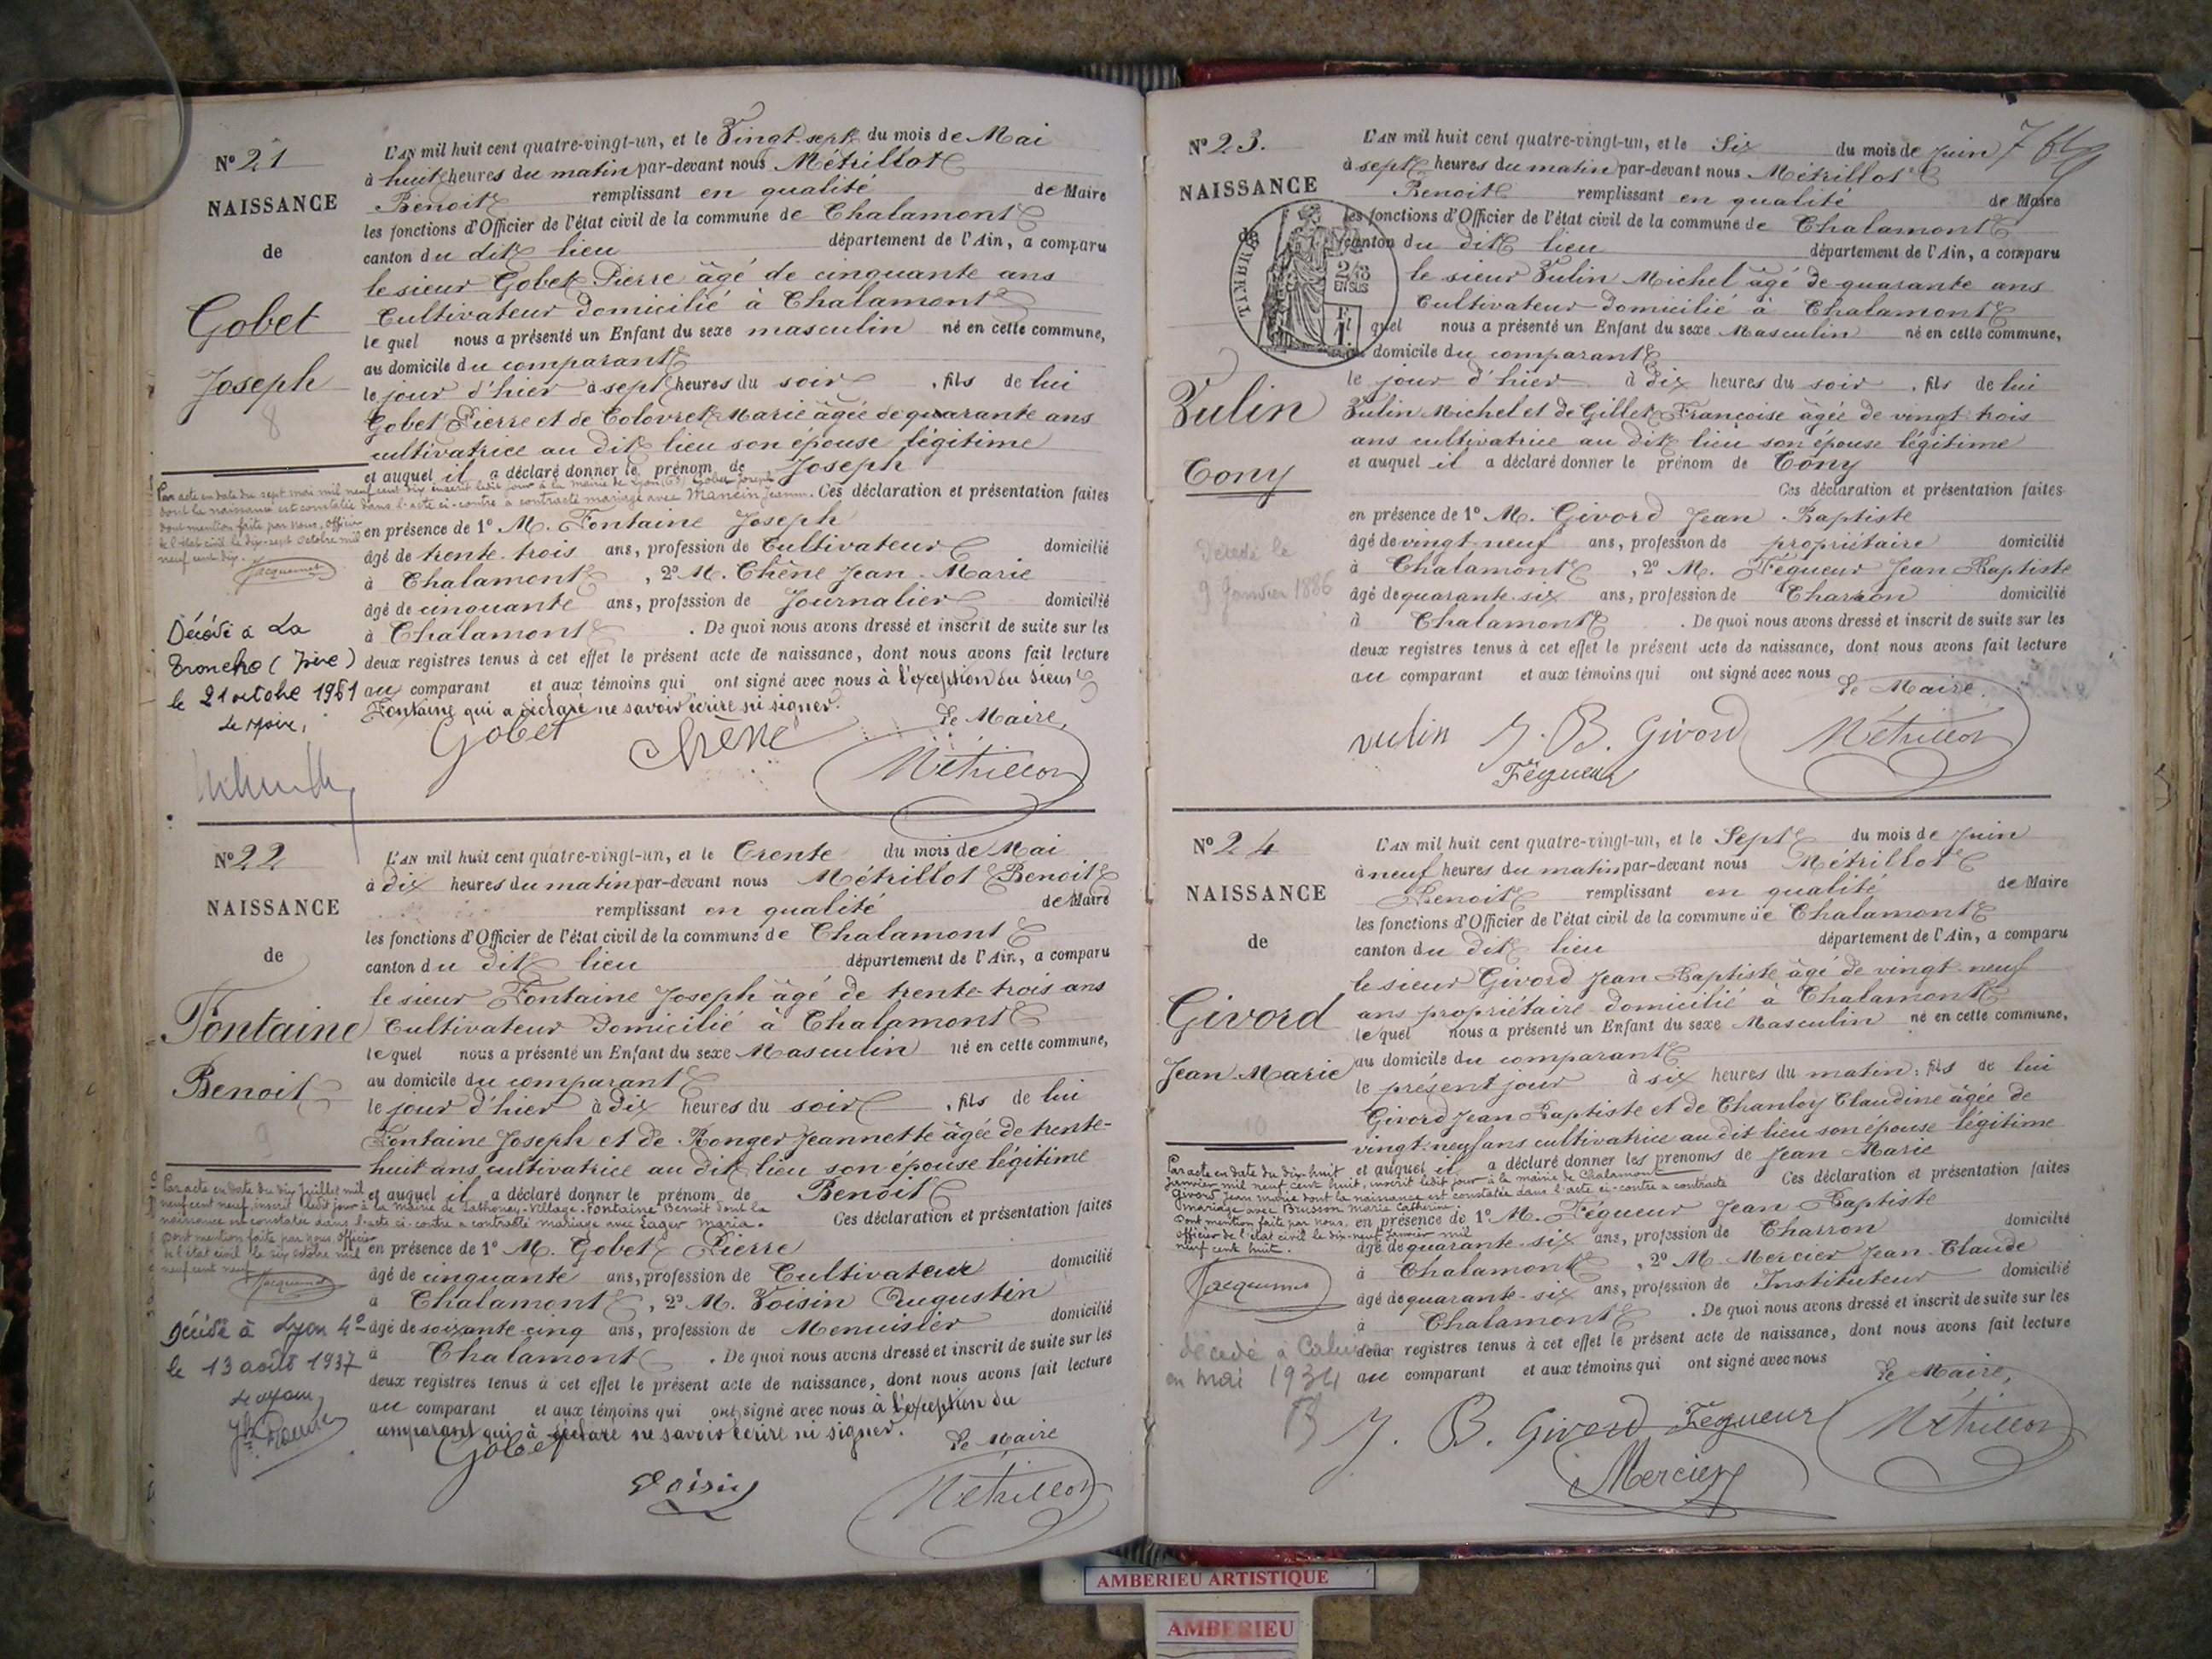 N° 21
NAISSANCE
de
Gobet
Joseph
8
L'AN mil huit cent quatre-vingt-un, et le Vingt-sept du mois de Mai
à huit heures du matin par-devant nous Métrillot
Benoit remplissant en qualité de Maire
les fonctions d'Officier de l'état civil de la commune de Chalamont
canton du dit lieu département de l'Ain, a comparu
le sieur Gobet Pierre âgé de cinquante ans
Cultivateur domicilié à Chalamont
lequel nous a présenté un Enfant du sexe masculin né en cette commune,
au domicile du comparant
le jour d'hier à sept heures du soir, fils de lui
Gobet Pierre et de Colovret Marie âgée de quarante ans
cultivatrice au dit lieu son épouse légitime
et auquel il a déclaré donner le prénom de Joseph
Ces déclaration et présentation faites
en présence de 1° M. Fontaine Joseph
âgé de trente-trois ans, profession de Cultivateur domicilié
à Chalamont, 2° M. Chêne Jean-Marie
âgé de cinquante ans, profession de Journalier domicilié
à Chalamont. De quoi nous avons dressé et inscrit de suite sur les
deux registres tenus à cet effet le présent acte de naissance, dont nous avons fait lecture
au comparant et aux témoins qui ont signé avec nous à l'exception du sieur
Fontaine qui a déclaré ne savoir écrire ni signer.
Le Maire,
Gobet Chêne Métrillot
Par acte en date du sept mai mil neuf cent dix inscrit ledit jour à la mairie de Lyon (6e) Gobet Joseph
dont la naissance est constatée dans l'acte ci-contre a contracté mariage avec Mancin Jeanne.
dont mention faite par nous, officier
de l'état civil le dix-sept octobre mil
neuf cent dix.
Jacquemet
Décédé à La
Tronche (Isère)
le 21 octobre 1961
Le Maire,
N° 22
NAISSANCE
de
Fontaine
Benoit
9
L'AN mil huit cent quatre-vingt-un, et le Trente du mois de Mai
à dix heures du matin par-devant nous Métrillot Benoit
remplissant en qualité de Maire
les fonctions d'Officier de l'état civil de la commune de Chalamont
canton du dit lieu département de l'Ain, a comparu
le sieur Fontaine Joseph âgé de trente-trois ans
Cultivateur domicilié à Chalamont
lequel nous a présenté un Enfant du sexe Masculin né en cette commune,
au domicile du comparant
le jour d'hier à dix heures du soir, fils de lui
Fontaine Joseph et de Ronger Jeannette âgée de trente-
huit ans, cultivatrice au dit lieu son épouse légitime
et auquel il a déclaré donner le prénom de Benoit
Ces déclaration et présentation faites
en présence de 1° M. Gobet Pierre
âgé de cinquante ans, profession de Cultivateur domicilié
à Chalamont, 2° M. Voisin Augustin
âgé de soixante-cinq ans, profession de Menuisier domicilié
à Chalamont. De quoi nous avons dressé et inscrit de suite sur les
deux registres tenus à cet effet le présent acte de naissance, dont nous avons fait lecture
au comparant et aux témoins qui ont signé avec nous à l'exception du
comparant qui a déclaré ne savoir écrire ni signer.
Le Maire
Gobet Voisin Métrillot
Par acte en date du dix Juillet mil
neuf cent neuf, inscrit ledit jour à la Mairie de Sathonay-Village. Fontaine Benoit dont la
naissance est constatée dans l'acte ci-contre a contracté mariage avec Lager Maria.
Dont mention faite par nous officier
de l'état civil le six octobre mil
neuf cent neuf
Jacquemet
Décédé à Lyon 4e
le 13 août 1937
N° 23.
NAISSANCE
de
Vulin
Cony
TIMBRE
2/10
EN SUS
L'AN mil huit cent quatre-vingt-un, et le Six du mois de Juin
à sept heures du matin par-devant nous Métrillot
Benoit remplissant en qualité de Maire
les fonctions d'Officier de l'état civil de la commune de Chalamont
canton du dit lieu département de l'Ain, a comparu
le sieur Vulin Michel âgé de quarante ans
Cultivateur domicilié à Chalamont
quel nous a présenté un Enfant du sexe Masculin né en cette commune,
domicile du comparant
le jour d'hier à dix heures du soir, fils de lui
Vulin Michel et de Gillet Françoise âgée de vingt-trois
ans cultivatrice au dit lieu son épouse légitime
et auquel il a déclaré donner le prénom de Cony
Ces déclaration et présentation faites
en présence de 1° M. Givord Jean-Baptiste
âgé de vingt-neuf ans, profession de propriétaire domicilié
à Chalamont, 2° M. Fégueur Jean Baptiste
âgé de quarante-six ans, profession de Charron domicilié
à Chalamont. De quoi nous avons dressé et inscrit de suite sur les
deux registres tenus à cet effet le présent acte de naissance, dont nous avons fait lecture
au comparant et aux témoins qui ont signé avec nous
Le Maire,
vulin J. B. Givord Métrillot
Fégueur
Décédé le
9 Janvier 1886
N° 24
NAISSANCE
de
Givord
Jean Marie
10
L'AN mil huit cent quatre-vingt-un, et le Sept du mois de Juin
à neuf heures du matin par-devant nous Métrillot
Benoit remplissant en qualité de Maire
les fonctions d'Officier de l'état civil de la commune de Chalamont
canton du dit lieu département de l'Ain, a comparu
le sieur Givord Jean-Baptiste âgé de vingt-neuf
ans propriétaire domicilié à Chalamont
lequel nous a présenté un Enfant du sexe Masculin né en cette commune,
au domicile du comparant
le présent jour à six heures du matin, fils de lui
Givord Jean Baptiste et de Chanloy Claudine âgée de
vingt-neuf ans cultivatrice au dit lieu son épouse légitime
et auquel il a déclaré donner les prénoms de Jean Marie
Ces déclaration et présentation faites
en présence de 1° M. Fégueur Jean Baptiste
âgé de quarante-six ans, profession de Charron domicilié
à Chalamont, 2° M. Mercier Jean-Claude
âgé de quarante-six ans, profession de Instituteur domicilié
à Chalamont. De quoi nous avons dressé et inscrit de suite sur les
deux registres tenus à cet effet le présent acte de naissance, dont nous avons fait lecture
au comparant et aux témoins qui ont signé avec nous
Le Maire,
J. B. Givord Fégueur Métrillot
Mercier
Par acte en date du dix-huit
Janvier mil neuf cent huit, inscrit ledit jour à la mairie de Chalamont
Givord Jean Marie dont la naissance est constatée dans l'acte ci-contre a contracté
mariage avec Buisson Marie Catherine.
Dont mention faite par nous,
officier de l'état civil le dix-neuf Janvier mil
neuf cent huit.
Jacquemet
décédé à
en mai 1934
AMBERIEU ARTISTIQUE
AMBERIEU